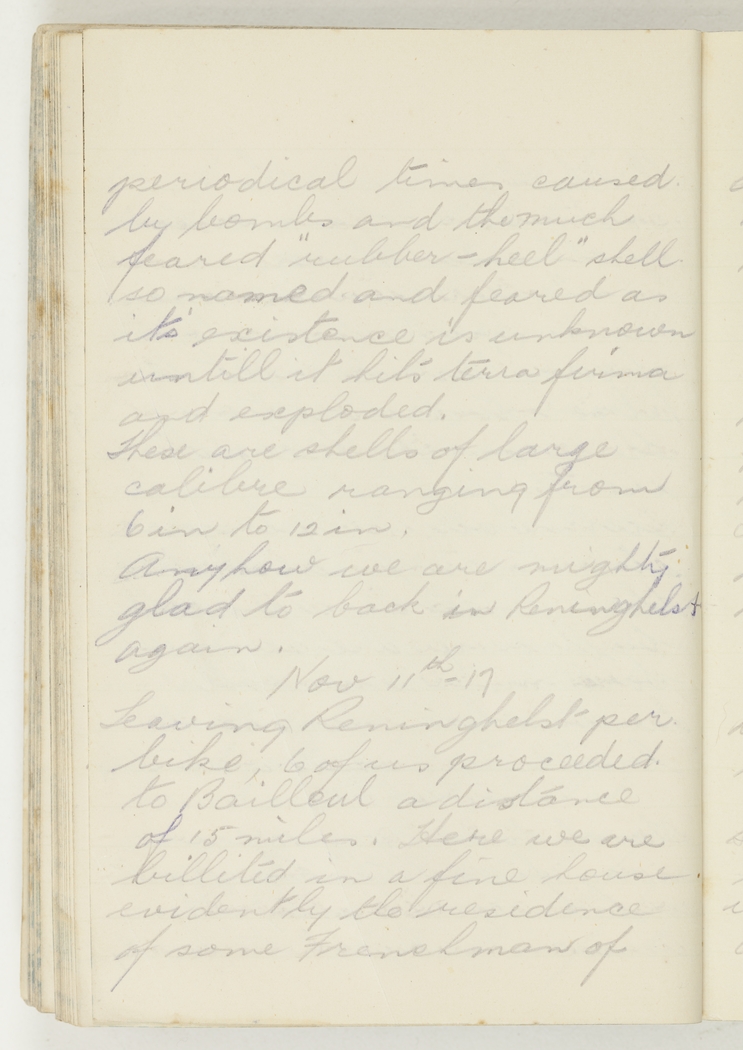 periodical times caused
by bombs and the much
feared "rubber-heel" shell
so named and feared as
it's existence is unknown
untill it hits terra firma
and exploded.
These are shells of large
calibre ranging from
6in to 12in.
Anyhow we are mighty
glad to back in Reninghelst
again.
Nov 11th-17
Leaving Reninghelst per
bike, 6 of us proceeded
to Bailleul a distance
of 15 miles. Here we are
billited in a fine house
evidently the residence
of some Frenchman of